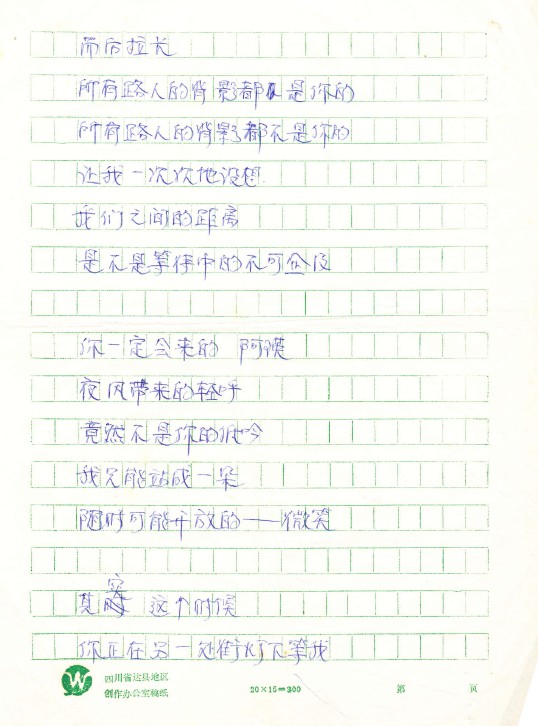 而后拉长
所有路人的背影都是你的
所有路人的背影都不是你的
让我一次次地设想
我们之间的距离
是不是等待中的不可企及
你一定会来的 阿馍
夜风带来的轻呼
竟然不是你的低吟
我只能站成一朵
随时可能开放的——微笑
其实 这个时候
你正在另一处街灯下等我
四川省达县地区
创作办公室稿纸
20×15=300
第 页